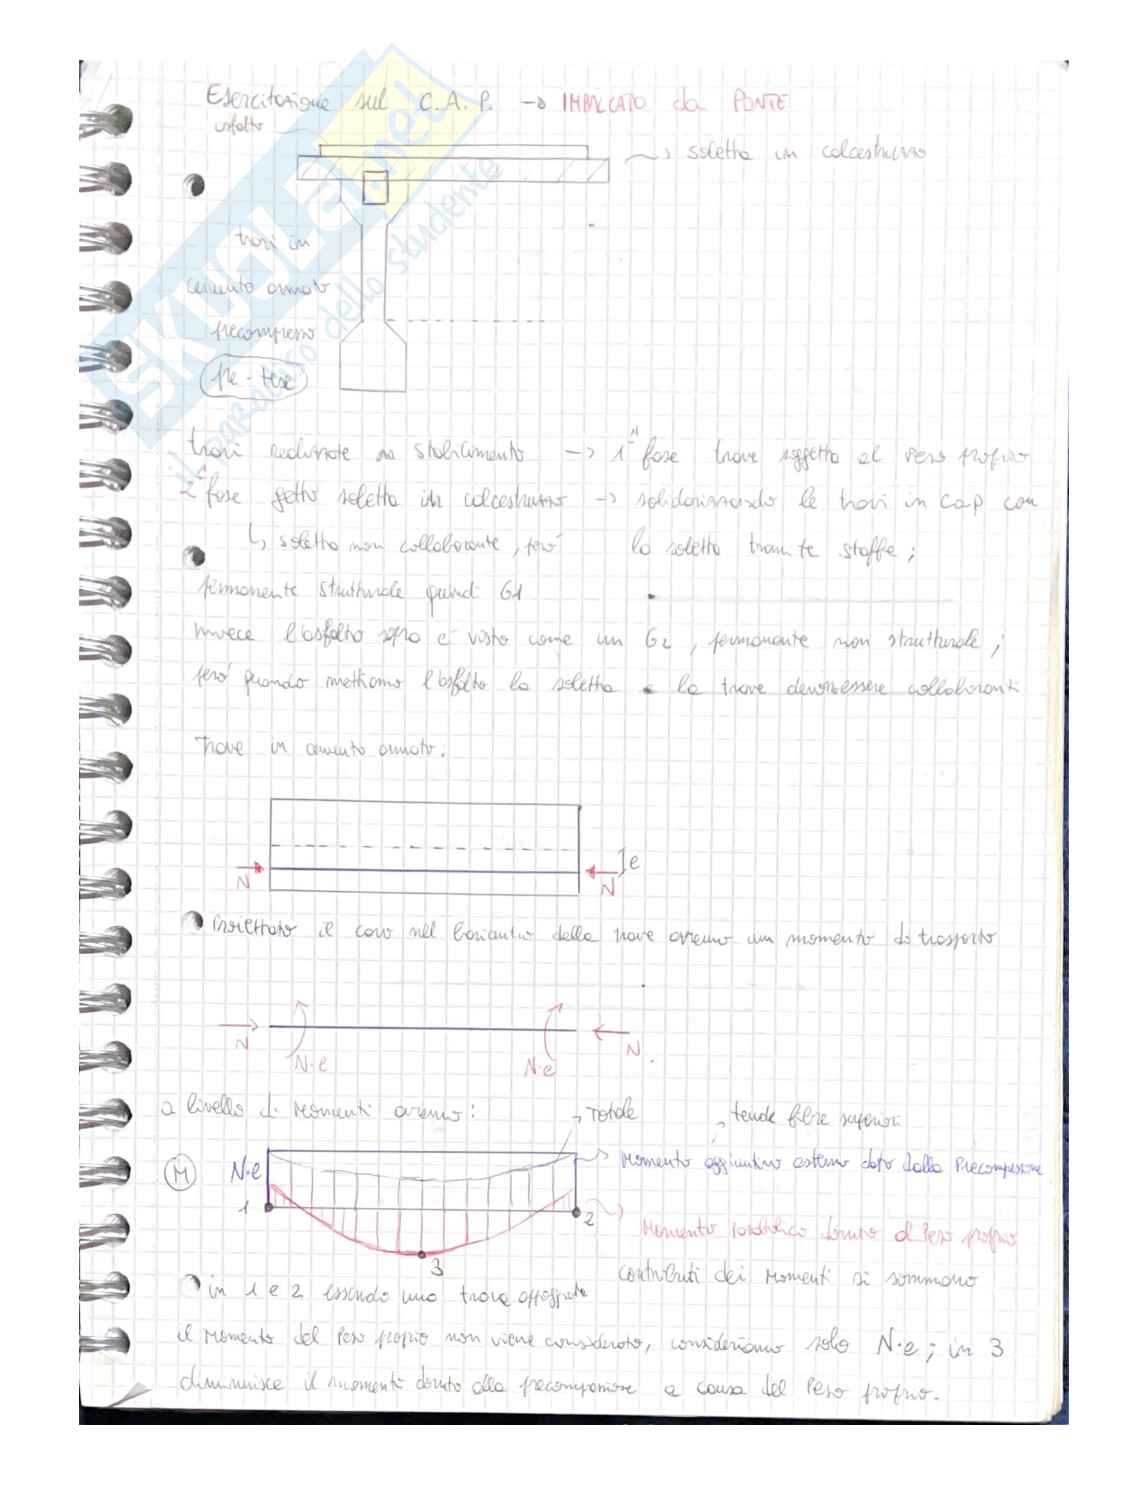 Esercitazione sul C.A.P. -> IMPALCATO da PONTE
asfalto
soletta in calcestruzzo
travi in
cemento armato
precompresso
pre-tese
SKUOLA.net
il paradiso dello studente
travi realizzate in stabilimento -> 1ª fase trave soggetta al peso proprio
2ª fase getto soletta in calcestruzzo -> solidarizzando le travi in cap con
↳ soletta non collaborante, però la soletta tramite staffe;
permanente strutturale quindi G1
invece l'asfalto sopra è visto come un G2, permanente non strutturale;
però quando mettiamo l'asfalto la soletta e la trave devono essere collaboranti
Trave in cemento armato:
e
N N
iniettato il cavo nel baricentro della trave avremo un momento di trasporto
N N
N·e N·e
a livello di Momenti avremo:
Totale
tende fibre superiori
M N·e Momento aggiuntivo esterno dato dalla Precompressione
1 2
Momento parabolico dovuto al Peso proprio
3
contributi dei Momenti si sommano
in 1 e 2 essendo una trave appoggiata
il Momento del Peso proprio non viene considerato, consideriamo solo N·e; in 3
diminuisce il momento dovuto alla precompressione a causa del Peso proprio.